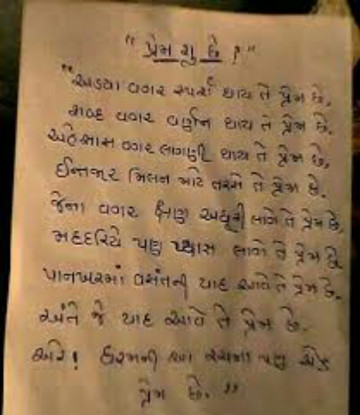 "પ્રેમ શુ છે ?"
"અડયા વગર સ્પર્શ થાય તે પ્રેમ છે.
શબ્દ વગર વર્ણન થાય તે પ્રેમ છે.
અહેસાસ વગર લાગણી થાય તે પ્રેમ છે,
ઈન્તજાર મિલન માટે તરસે તે પ્રેમ છે.
જેના વગર ક્ષણ અધૂરી લાગે તે પ્રેમ છે,
મહદરિયે પણ પ્યાસ લાગે તે પ્રેમ છે
પાનખરમાં વસંતની યાદ આવે તે પ્રેમ છે.
અંતે જે યાદ આવે તે પ્રેમ છે.
અરે! આ રચના પણ એક
પ્રેમ છે."